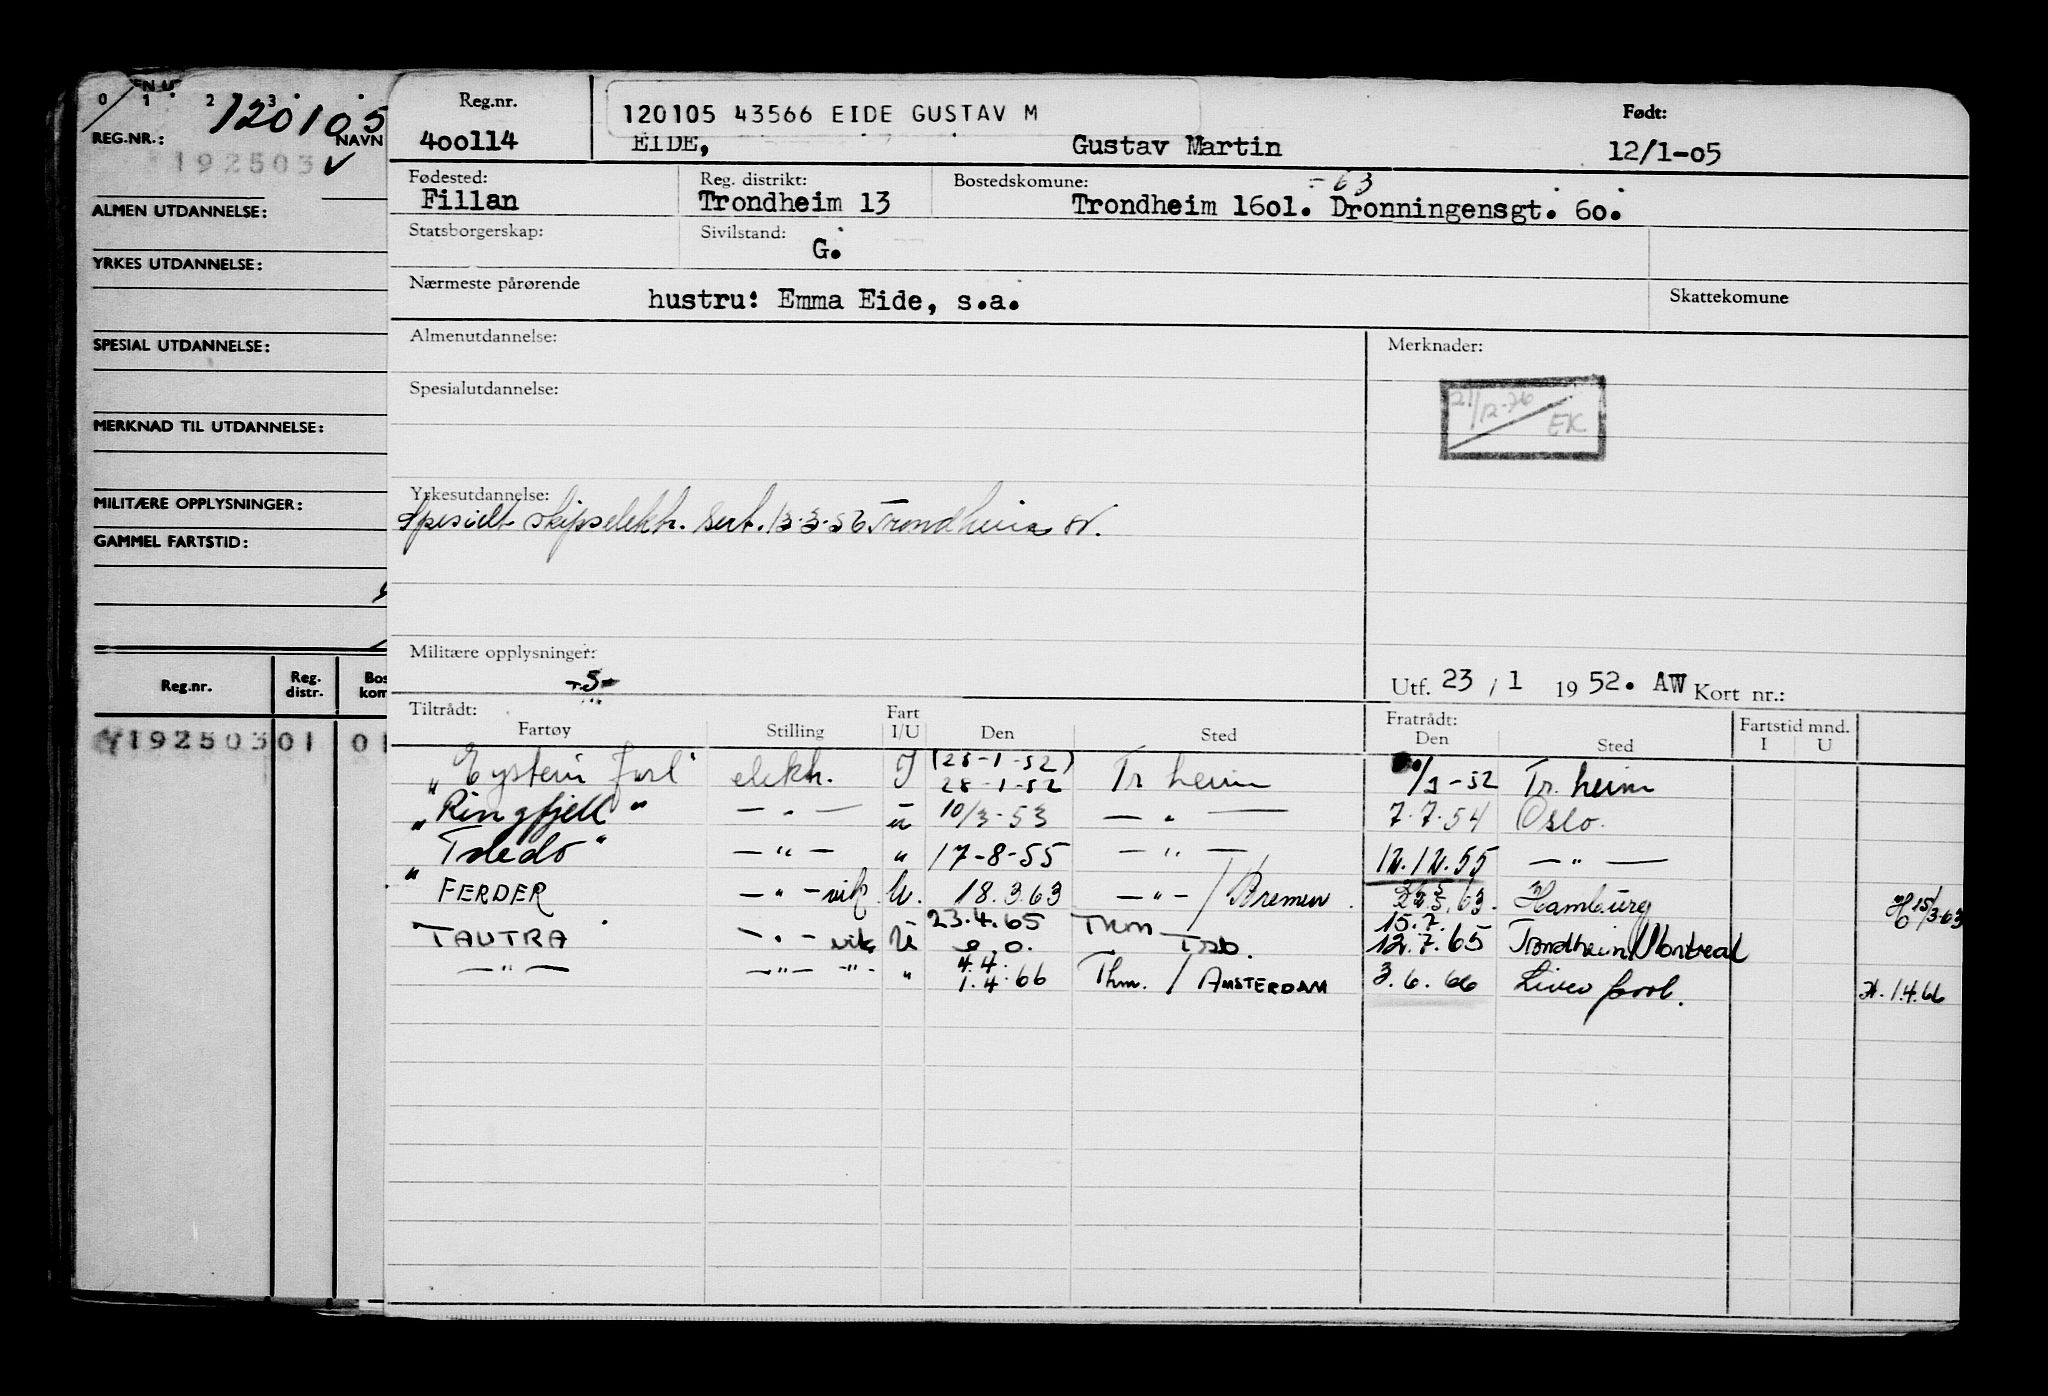 0 1 2 3
REG.NR.: 120105 NAVN
192503
ALMEN UTDANNELSE:
YRKES UTDANNELSE:
SPESIAL UTDANNELSE:
MERKNAD TIL UTDANNELSE:
MILITÆRE OPPLYSNINGER:
GAMMEL FARTSTID:
Reg.nr. Reg. distr. Bos kom
192503 01 01
Reg.nr. 120105 43566 EIDE GUSTAV M Født:
400114 EIDE, Gustav Martin 12/1-05
Fødested: Reg. distrikt: Bostedskomune: -63
Fillan Trondheim 13 Trondheim 1601. Dronningensgt. 60.
Statsborgerskap: Sivilstand: G.
Nærmeste pårørende hustru: Emma Eide, s.a. Skattekomune
Almenutdannelse: Merknader:
21/12-76 EK
Spesialutdannelse:
Yrkesutdannelse:
skipselektr. sert. 13-3-56 Trondheim
Militære opplysninger:
-5-
Utf. 23 / 1 1952. AW Kort nr.:
Tiltrådt: Fart Fratrådt: Fartstid mnd.
Fartøy Stilling I/U Den Sted Den Sted I U
"Eystein Jarl" elektr. I (28-1-52) 28-1-52 Tr.heim /3-52 Tr.heim
"Ringfjell" — " — u 10/3-53 — " — 7.7.54 Oslo.
"Toledo" — " — " 17-8-55 — " — 12.12.55 — " —
" FERDER — " — vik. U. 18.3.63 — " — / Bremen. 63. Hamburg H 15/3-63
TAUTRA — " — vik U 23.4.65 Thm 15.7. 12.7.65 Trondheim/Montreal
— " — — " — " — " 4.4. 1.4.66 Thm. / AMSTERDAM 3.6.66 Liverpool. H. 1.4.66